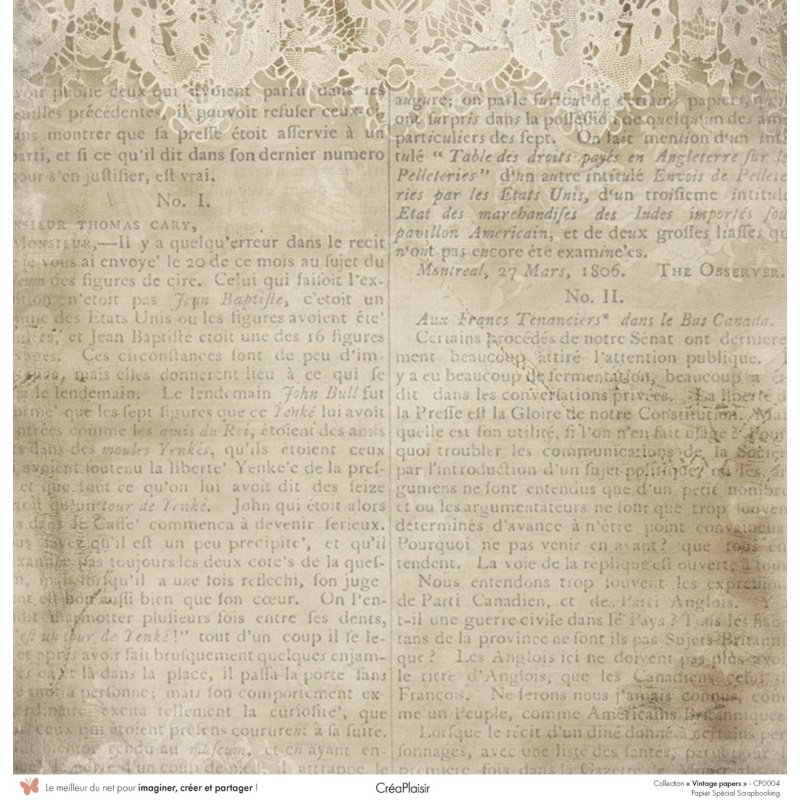 voir publié ceux qui avoient paru dans les
feuilles précédentes, il pouvoit refuser ceux-ci
sans montrer que sa presse étoit asservie à un
parti, et si ce qu'il dit dans son dernier numero
pour s'en justifier, est vrai.
No. I.
THOMAS CARY,
MONSIEUR,—Il y a quelqu'erreur dans le recit
vous ai envoye' le 20 de ce mois au sujet du
des figures de cire. Celui qui faisoit l'ex-
n'etoit pas Jean Baptiste, c'etoit un
des Etats Unis ou les figures avoient été'
et Jean Baptiste etoit une des 16 figures
Ces circonstances sont de peu d'im-
mais elles donnerent lieu à ce qui se
le lendemain. Le lendemain John Bull fut
que les sept figures que ce Yenké lui avoit
comme les amis du Roi, étoient des amis
dans des moules Yenkés, qu'ils étoient ceux
avoient soutenu la liberte' Yenke'e de la pres-
et que tout ce qu'on lui avoit dit des seize
qu'un tour de Yenké. John qui étoit alors
dans le Caffe' commenca à devenir serieux.
qu'il est un peu precipite', et qu'il
pas toujours les deux cote's de la ques-
mais lorsqu'il a une fois reflechi, son juge
est bon aussi bien que son cœur. On l'en-
marmotter plusieurs fois entre ses dents,
c'est un tour de Yenké!" tout d'un coup il se le-
et après avoir fait brusquement quelques enjam-
là dans la place, il passa la porte sans
mot à personne; mais son comportement ex-
excita tellement la curiosite', que
ceux qui étoient présens coururent à sa suite.
rendu au museum, et en ayant en-
un coup de il attrappe le
augure; on parle surtout de certains papiers, qui
ont surpris dans la possession de quelqu'un des ame
particuliers des sept. On fait mention d'un inti
tulé "Table des droits payés en Angleterre sur le
Pelleteries" d'un autre intitulé Envois de Pellete
ries par les Etats Unis, d'un troisieme intitulé
Etat des marchandises des Indes importés sou
pavillon Americain, et de deux grosses liasses qu
n'ont pas encore été examine'es.
Montreal, 27 Mars, 1806. THE OBSERVER.
No. II.
Aux Francs Tenanciers* dans le Bas Canada.
Certains procédés de notre Sénat ont derniere
ment beaucoup attiré l'attention publique.
y a eu beaucoup de fermentation, beaucoup a é
dit dans les conversations privées. La liberté d
la Presse est la Gloire de notre Constitution. Mai
quelle est son utilité, si l'on n'en fait usage? Pour
quoi troubler les communications de la Societ
par l'introduction d'un sujet politique, ar
gumens ne sont entendus que d'un petit nombre
et ou les argumentateurs ne sont que trop souven
déterminés d'avance à n'être point convaincus
Pourquoi ne pas venir en avant? que tous en
tendent. La voie de la réplique est ouverte à tous
Nous entendons trop souvent les expression
de Parti Canadien, et de Parti Anglois. Y
t-il une guerre civile dans le Pays? Tous les habi
tans de la province ne sont ils pas Sujets Britanni
que? Les Anglois ici ne doivent pas plus avoi
le titre d'Anglois, que les Canadiens celui
François. Ne serons nous jamais connus, com
me un Peuple, comme Américains Britanniques
Lorsque le récit d'un diné donné à certains per
sonnages, avec une liste des santés, parut pour
premiere fois dans la Gazette de
Le meilleur du net pour imaginer, créer et partager !
CréaPlaisir
Collection « Vintage papers » - CP0004
Papier Spécial Scrapbooking